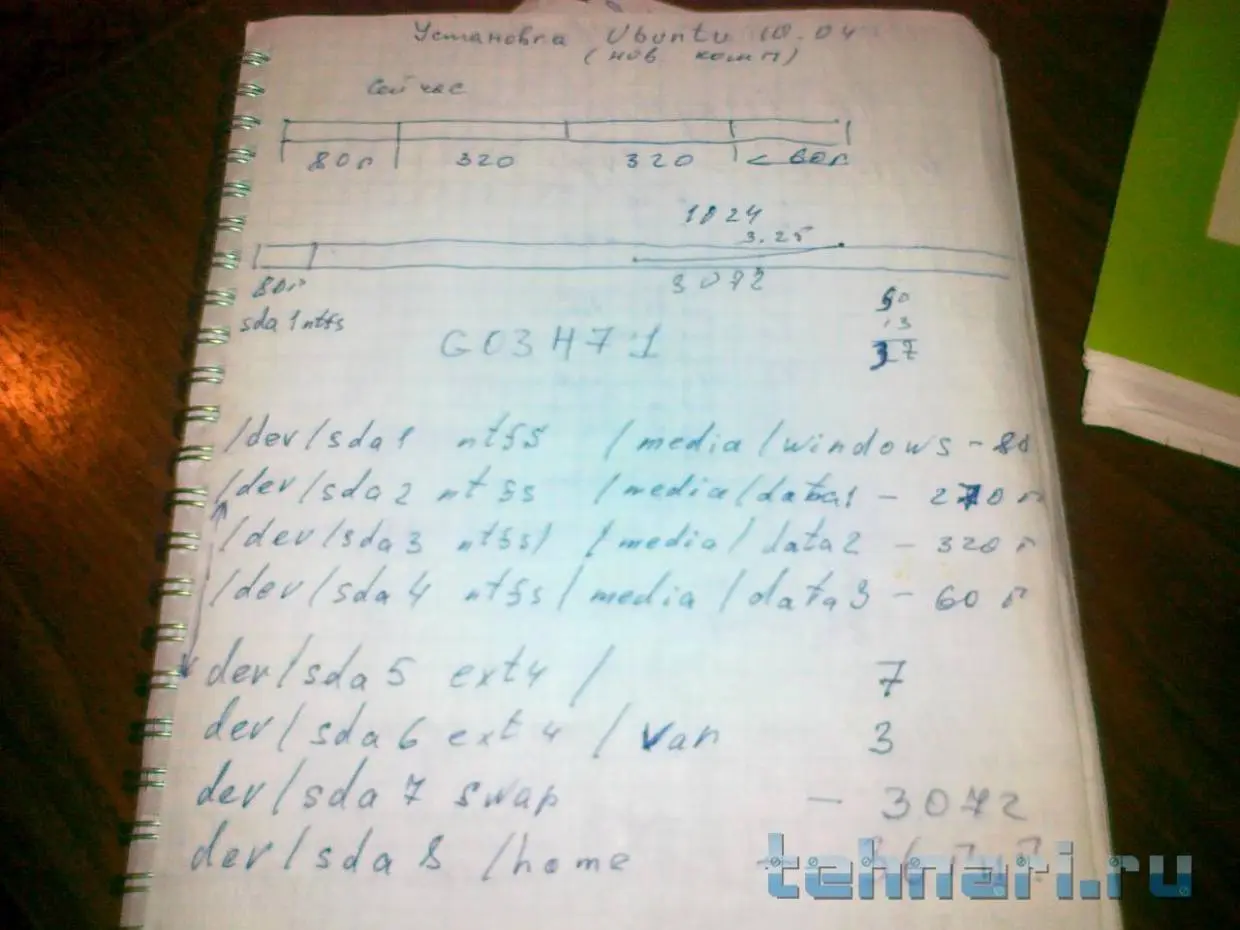 Установка Ubuntu 10.04
(нов комп)
Сейчас
80г 320 320 < 60г
1024
3.25
3072
80г
sda1 ntfs
50
13
37
G03H71
/dev/sda1 ntfs /media/windows - 80
/dev/sda2 ntfs /media/data1 - 270 г
/dev/sda3 ntfs) /media/data2 - 320 г
/dev/sda4 ntfs/media/data3 - 60 г
dev/sda5 ext4 / 7
dev/sda6 ext4 /var 3
dev/sda7 swap - 3072
dev/sda8 /home
tehnari.ru